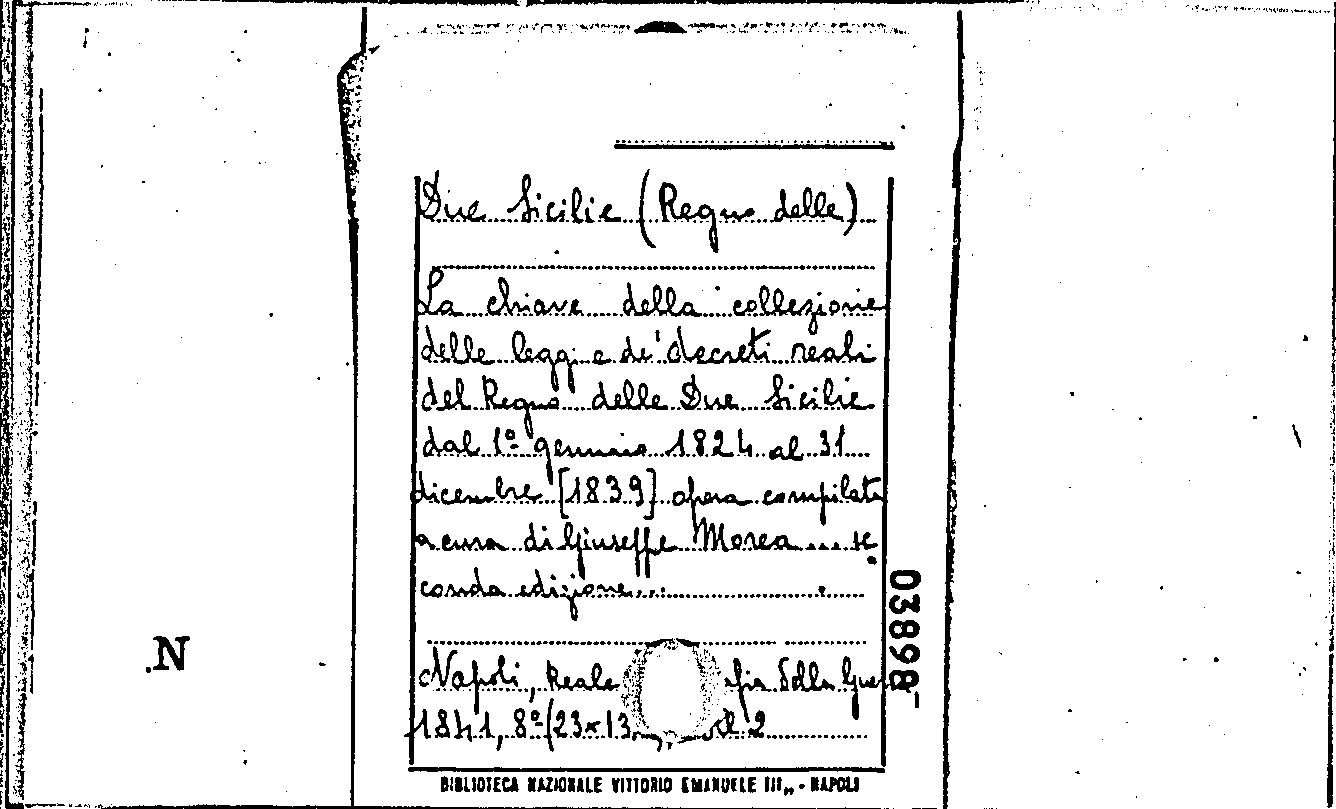 Due Sicilie (Regno delle)
La chiave della collezione
delle leggi e de' decreti reali
del Regno delle Due Sicilie
dal 1º gennaio 1824 al 31
dicembre [1839] opera compilata
a cura di Giuseppe Morea ... se
conda edizione...
Napoli, Reale della
1841, 8º (23x13, 2
BIBLIOTECA NAZIONALE VITTORIO EMANUELE III„ - NAPOLI
03898
N